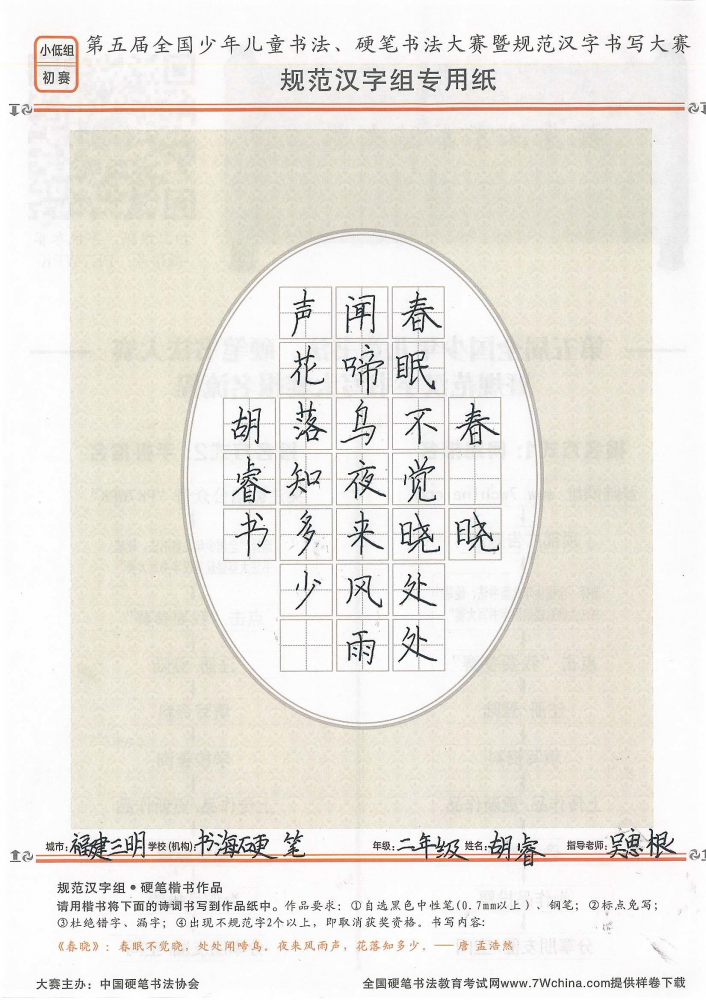 小低组
初赛
第五届全国少年儿童书法、硬笔书法大赛暨规范汉字书写大赛
规范汉字组专用纸
春晓
春眠不觉晓处处
闻啼鸟夜来风雨
声花落知多少
胡睿书
城市：福建三明 学校(机构)：书海硬笔 年级：二年级 姓名：胡睿 指导老师：吴惠根
规范汉字组•硬笔楷书作品
请用楷书将下面的诗词书写到作品纸中。作品要求：①自选黑色中性笔(0.7mm以上)、钢笔；②标点免写；
③杜绝错字、漏字；④出现不规范字2个以上，即取消获奖资格。书写内容：
《春晓》：春眠不觉晓，处处闻啼鸟。夜来风雨声，花落知多少。——唐 孟浩然
大赛主办：中国硬笔书法协会
全国硬笔书法教育考试网www.7Wchina.com提供样卷下载